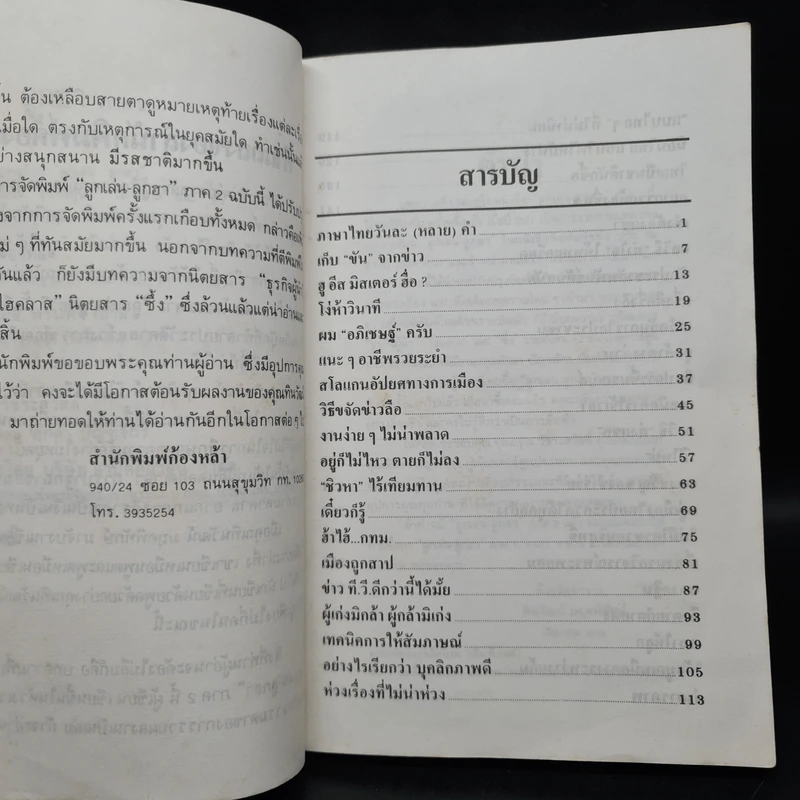 ต้องเหลือบสายตาดูหมายเหตุท้ายเรื่องแต่ละ
เมื่อใด ตรงกับเหตุการณ์ในยุคสมัยใด ทำเช่นนั้น
อย่างสนุกสนาน มีรสชาติมากขึ้น
การจัดพิมพ์ “ลูกเล่น-ลูกฮา” ภาค 2 ฉบับนี้ ได้ปรับ
จากการจัดพิมพ์ครั้งแรกเกือบทั้งหมด กล่าวคือ
ใหม่ ๆ ที่ทันสมัยมากขึ้น นอกจากบทความที่ตีพิมพ์
กันแล้ว ก็ยังมีบทความจากนิตยสาร “ธุรกิจ
ไฮคลาส” นิตยสาร “ซึ้ง” ซึ่งล้วนแล้วแต่น่าอ่าน
สิ้น
สำนักพิมพ์ขอขอบพระคุณท่านผู้อ่าน ซึ่งมีอุปการ
ไว้ว่า คงจะได้มีโอกาสต้อนรับผลงานของคุณทินวัฒน์
มาถ่ายทอดให้ท่านได้อ่านกันอีกในโอกาสต่อ ๆ ไป
สำนักพิมพ์ก้องหล้า
940/24 ซอย 103 ถนนสุขุมวิท กท.
โทร. 3935254
สารบัญ
ภาษาไทยวันละ (หลาย) คำ 1
เก็บ “ขัน” จากข่าว 7
ฮู อีส มิสเตอร์ ฮื่อ ? 13
โง่ห้าวินาที 19
ผม “อภิเชษฐ์” ครับ 25
แนะ ๆ อาชีพรวยระยำ 31
สโลแกนอัปยศทางการเมือง 37
วิธีขจัดข่าวลือ 45
งานง่าย ๆ ไม่น่าพลาด 51
อยู่ก็ไม่ไหว ตายก็ไม่ลง 57
“ชิวหา” ไร้เทียมทาน 63
เดี๋ยวก็รู้ 69
ฮ้าไฮ้...กทม. 75
เมืองถูกสาป 81
ข่าว ที.วี.ดีกว่านี้ได้มั้ย 87
ผู้เก่งมิกล้า ผู้กล้ามิเก่ง 93
เทคนิคการให้สัมภาษณ์ 99
อย่างไรเรียกว่า บุคลิกภาพดี 105
ห่วงเรื่องที่ไม่น่าห่วง 113